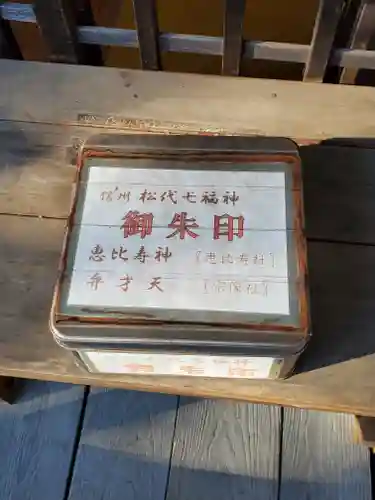 信州 松代七福神
御朱印
恵比寿神 [恵比寿社]
弁才天 [宗像社]